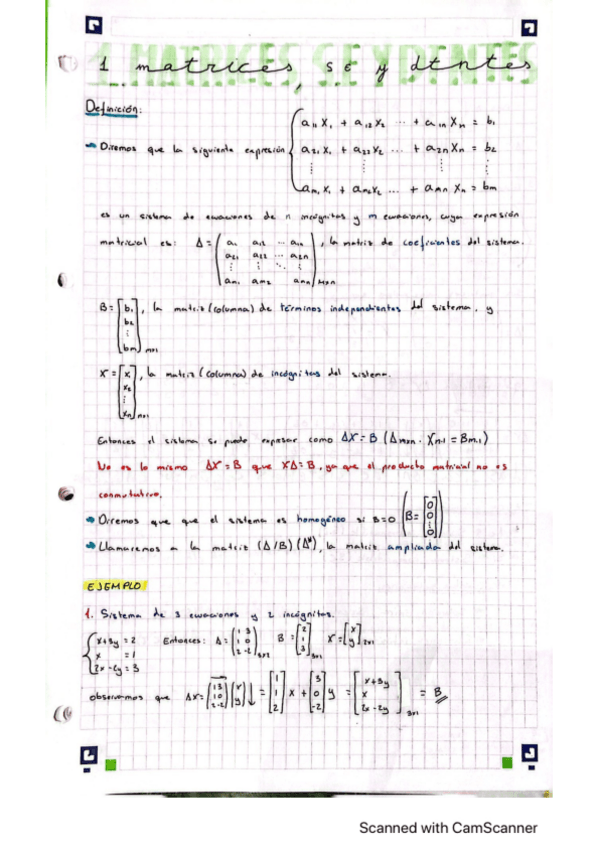 1. MATRICES, S.E Y DTNTES
1 matrices, s e y dtntes
Definición:
Diremos que la siguiente expresión { a₁₁X₁ + a₁₂X₂ ... + a₁ₙXₙ = b₁
a₂₁X₁ + a₂₂X₂ ... + a₂ₙXₙ = b₂
⋮ ⋮ ⋮
aₘ₁X₁ + aₘ₂X₂ ... + aₘₙXₙ = bₘ
es un sistema de ecuaciones de n incógnitas y m ecuaciones, cuya expresión
matricial es: A = ( a₁₁ a₁₂ ... a₁ₙ ), la matriz de coeficientes del sistema.
a₂₁ a₂₂ ... a₂ₙ
⋮ ⋮ ⋱ ⋮
aₘ₁ aₘ₂ aₘₙ ) mxn
B = [ b₁ ], la matriz (columna) de términos independientes del sistema, y
b₂
⋮
bm ] mx1
X = [ x₁ ], la matriz (columna) de incógnitas del sistema.
x₂
⋮
xₙ ] nx1
Entonces el sistema se puede expresar como AX = B (Aₘₓₙ · Xₙ·₁ = Bₘ·₁)
No es lo mismo AX = B que XA = B, ya que el producto matricial no es
conmutativo.
Diremos que que el sistema es homogéneo si B=0 ( B = [ 0 0 ⋮ 0 ] )
Llamaremos a la matriz (A/B) (A*), la matriz ampliada del sistema.
EJEMPLO
1. Sistema de 3 ecuaciones y 2 incógnitas.
{ x+3y = 2 Entonces: A = ( 1 3 B = [ 2 X = [ x
x = 1 1 0 1 y ] 2x1
2x - 2y = 3 2 -2 ) 3x2 3 ] 3x1
observamos que AX = [ 1 3 1 0 2 -2 ] [ x y ] ↓ = [ 1 1 2 ] x + [ 3 0 -2 ] y = [ x+3y x 2x-2y ] 3x1 = B
Scanned with CamScanner